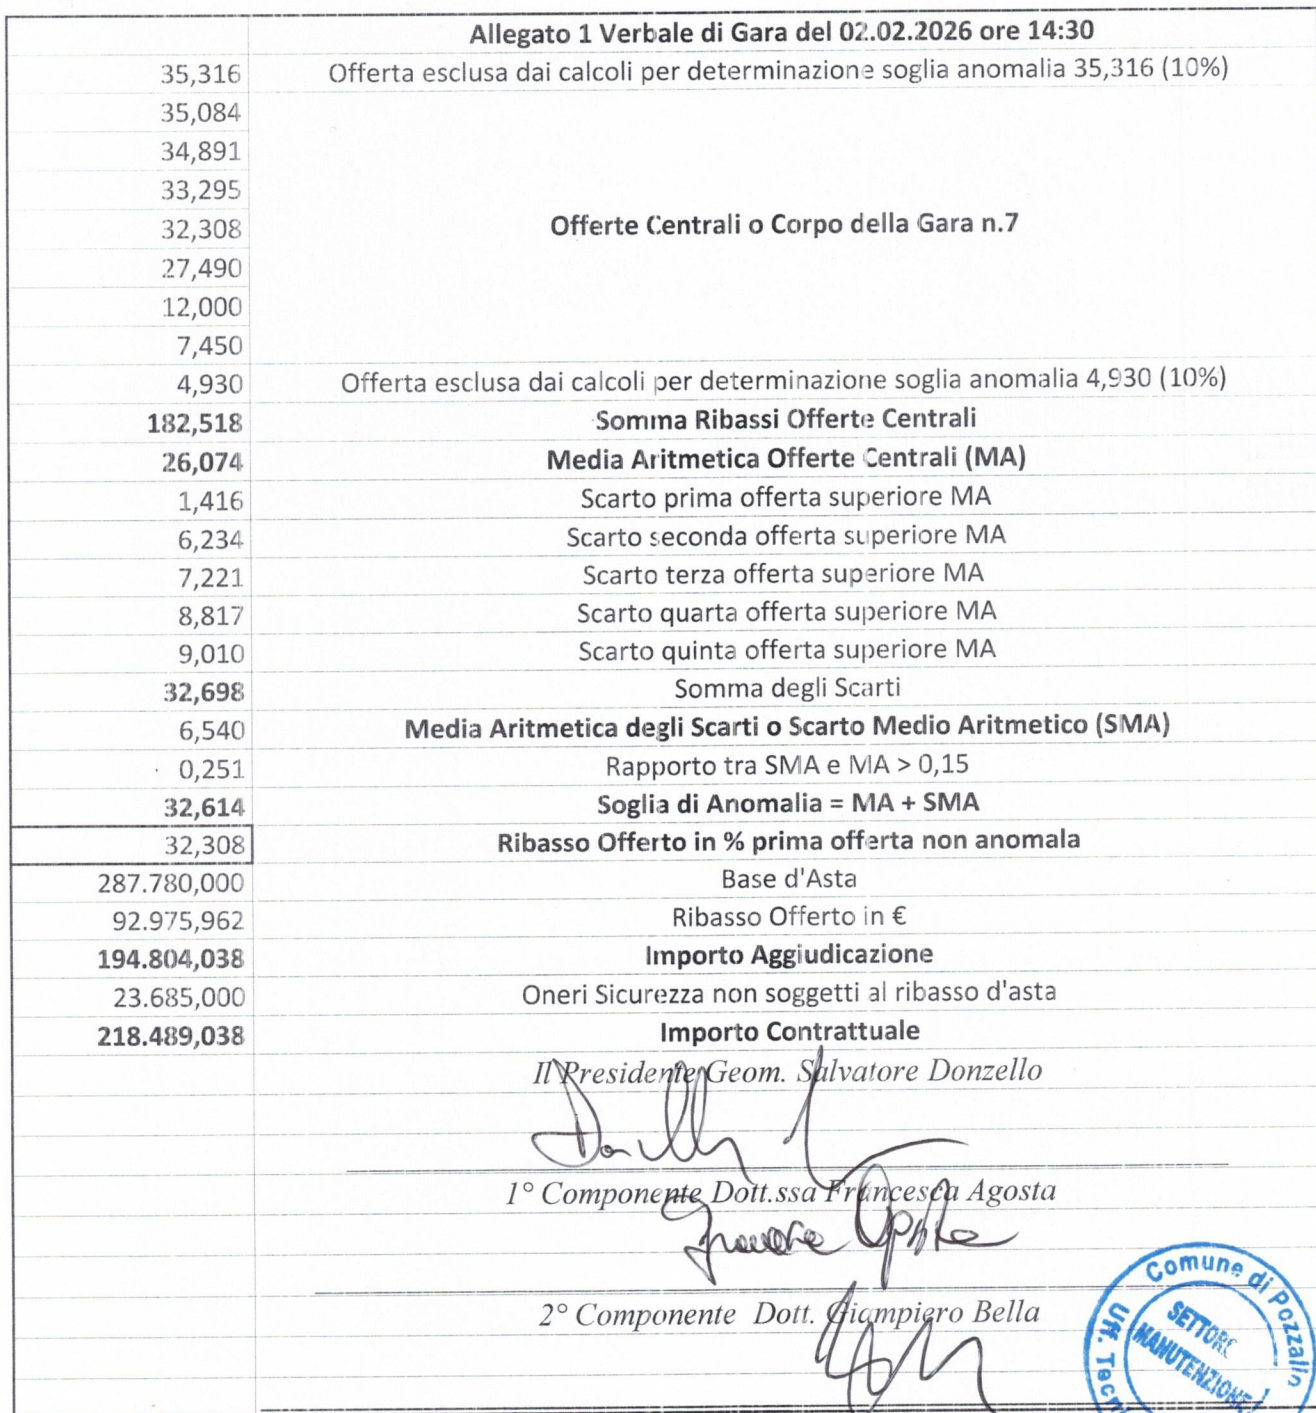 Allegato 1 Verbale di Gara del 02.02.2026 ore 14:30
35,316 Offerta esclusa dai calcoli per determinazione soglia anomalia 35,316 (10%)
35,084
34,891
33,295
32,308 Offerte Centrali o Corpo della Gara n.7
27,490
12,000
7,450
4,930 Offerta esclusa dai calcoli per determinazione soglia anomalia 4,930 (10%)
182,518 Somma Ribassi Offerte Centrali
26,074 Media Aritmetica Offerte Centrali (MA)
1,416 Scarto prima offerta superiore MA
6,234 Scarto seconda offerta superiore MA
7,221 Scarto terza offerta superiore MA
8,817 Scarto quarta offerta superiore MA
9,010 Scarto quinta offerta superiore MA
32,698 Somma degli Scarti
6,540 Media Aritmetica degli Scarti o Scarto Medio Aritmetico (SMA)
0,251 Rapporto tra SMA e MA > 0,15
32,614 Soglia di Anomalia = MA + SMA
32,308 Ribasso Offerto in % prima offerta non anomala
287.780,000 Base d'Asta
92.975,962 Ribasso Offerto in €
194.804,038 Importo Aggiudicazione
23.685,000 Oneri Sicurezza non soggetti al ribasso d'asta
218.489,038 Importo Contrattuale
Il Presidente Geom. Salvatore Donzello
1° Componente Dott.ssa Francesca Agosta
2° Componente Dott. Giampiero Bella
Comune di Pozzallo
Uff.
SETTORE
MANUTENZIONE